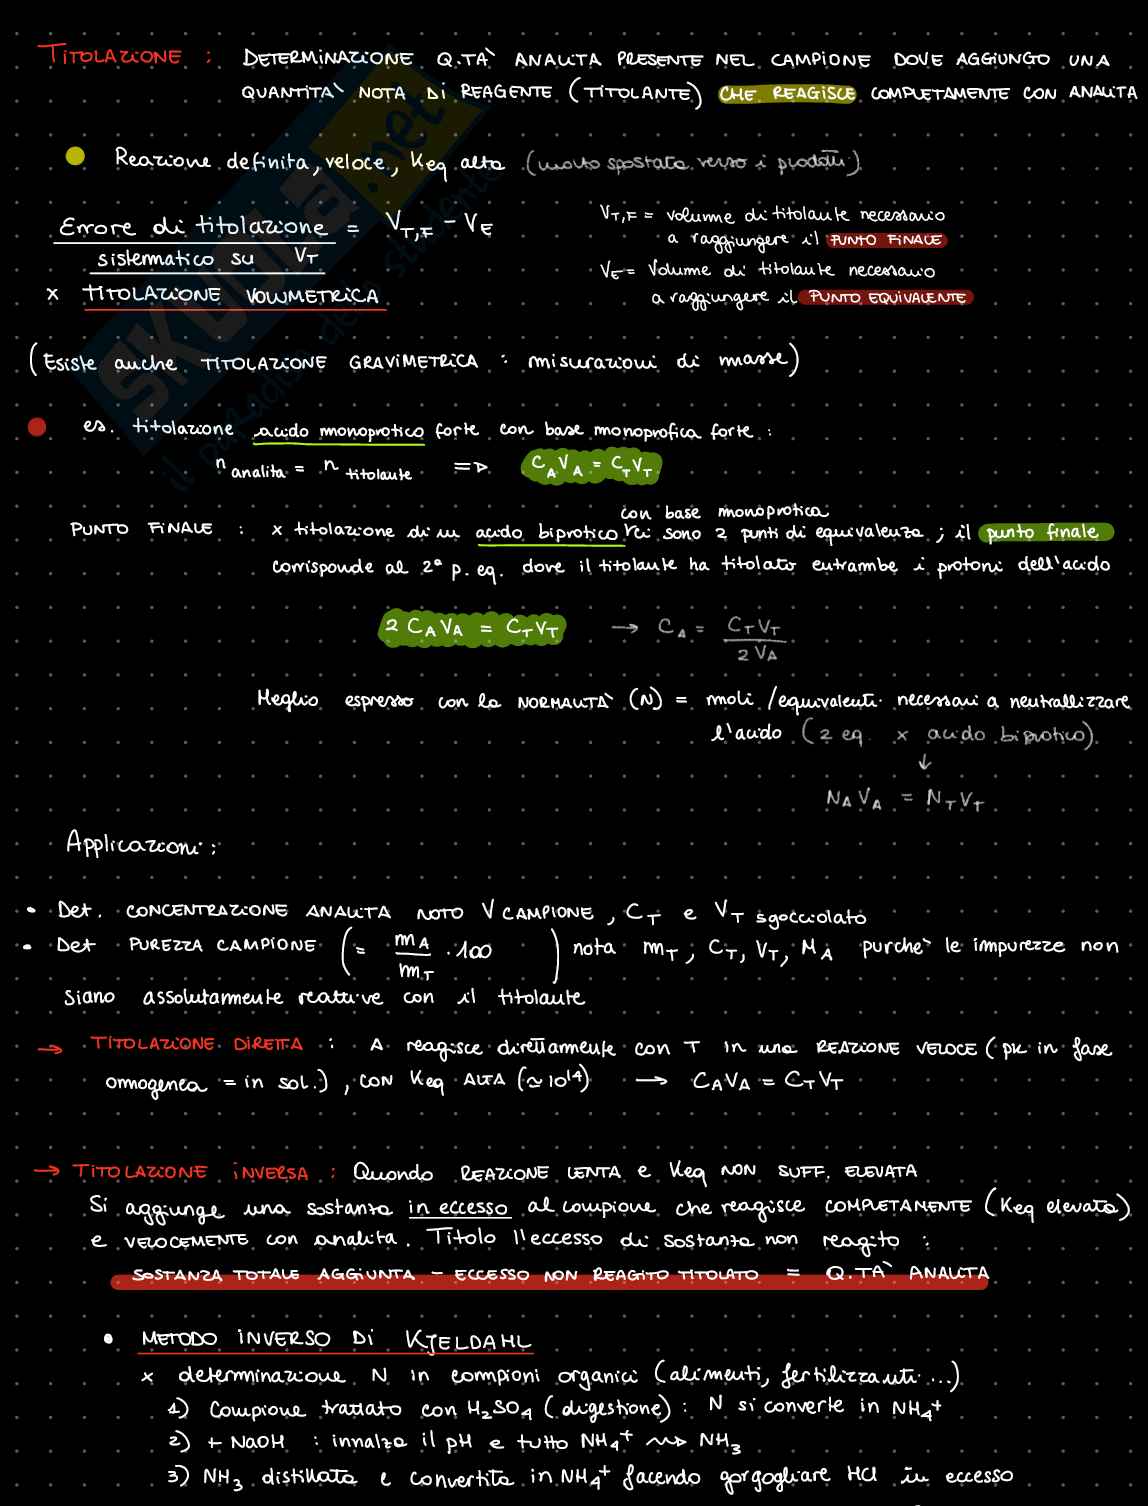 TITOLAZIONE : DETERMINAZIONE Q.TA' ANALITA PRESENTE NEL CAMPIONE DOVE AGGIUNGO UNA
QUANTITA' NOTA DI REAGENTE (TITOLANTE) CHE REAGISCE COMPLETAMENTE CON ANALITA
Reazione definita, veloce, Keq alta (molto spostata verso i prodotti)
Errore di titolazione = V_T,F - V_E
sistematico su V_T
x TITOLAZIONE VOLUMETRICA
V_T,F = volume di titolante necessario
a raggiungere il PUNTO FINALE
V_E = Volume di titolante necessario
a raggiungere il PUNTO EQUIVALENTE
(Esiste anche TITOLAZIONE GRAVIMETRICA : misurazioni di masse)
es. titolazione acido monoprotico forte con base monoprotica forte :
n analita = n titolante => C_A V_A = C_T V_T
con base monoprotica
PUNTO FINALE : x titolazione di un acido biprotico ci sono 2 punti di equivalenza ; il punto finale
corrisponde al 2° p. eq. dove il titolante ha titolato entrambe i protoni dell'acido
2 C_A V_A = C_T V_T → C_A = C_T V_T / 2 V_A
Meglio espresso con la NORMALITA' (N) = moli /equivalenti necessari a neutrallizzare
l'acido (2 eq. x acido biprotico)
↓
N_A V_A = N_T V_T
Applicazioni :
• Det. CONCENTRAZIONE ANALITA NOTO V CAMPIONE , C_T e V_T sgocciolato
• Det PUREZZA CAMPIONE (= m_A / m_T · 100 ) nota m_T , C_T, V_T, M_A purche' le impurezze non
siano assolutamente reattive con il titolante
→ TITOLAZIONE DIRETTA : A reagisce direttamente con T in una REAZIONE VELOCE (pk in fase
omogenea = in sol.) , CON Keq ALTA (≃10¹⁴) → C_A V_A = C_T V_T
→ TITOLAZIONE INVERSA : Quando REAZIONE LENTA e Keq NON SUFF. ELEVATA
Si aggiunge una sostanza in eccesso al campione che reagisce COMPLETAMENTE (Keq elevata)
e VELOCEMENTE con analita. Titolo l'eccesso di sostanza non reagito :
SOSTANZA TOTALE AGGIUNTA - ECCESSO NON REAGITO TITOLATO = Q.TA' ANALITA
• METODO INVERSO DI KJELDAHL
x determinazione N in campioni organici (alimenti, fertilizzanti ...)
1) Campione trattato con H₂SO₄ (digestione) : N si converte in NH₄⁺
2) + NaOH : innalza il pH e tutto NH₄⁺ ⇝ NH₃
3) NH₃ distillata e convertita in NH₄⁺ facendo gorgogliare HCl in eccesso
SKUOLA.net
il paradiso dello studente